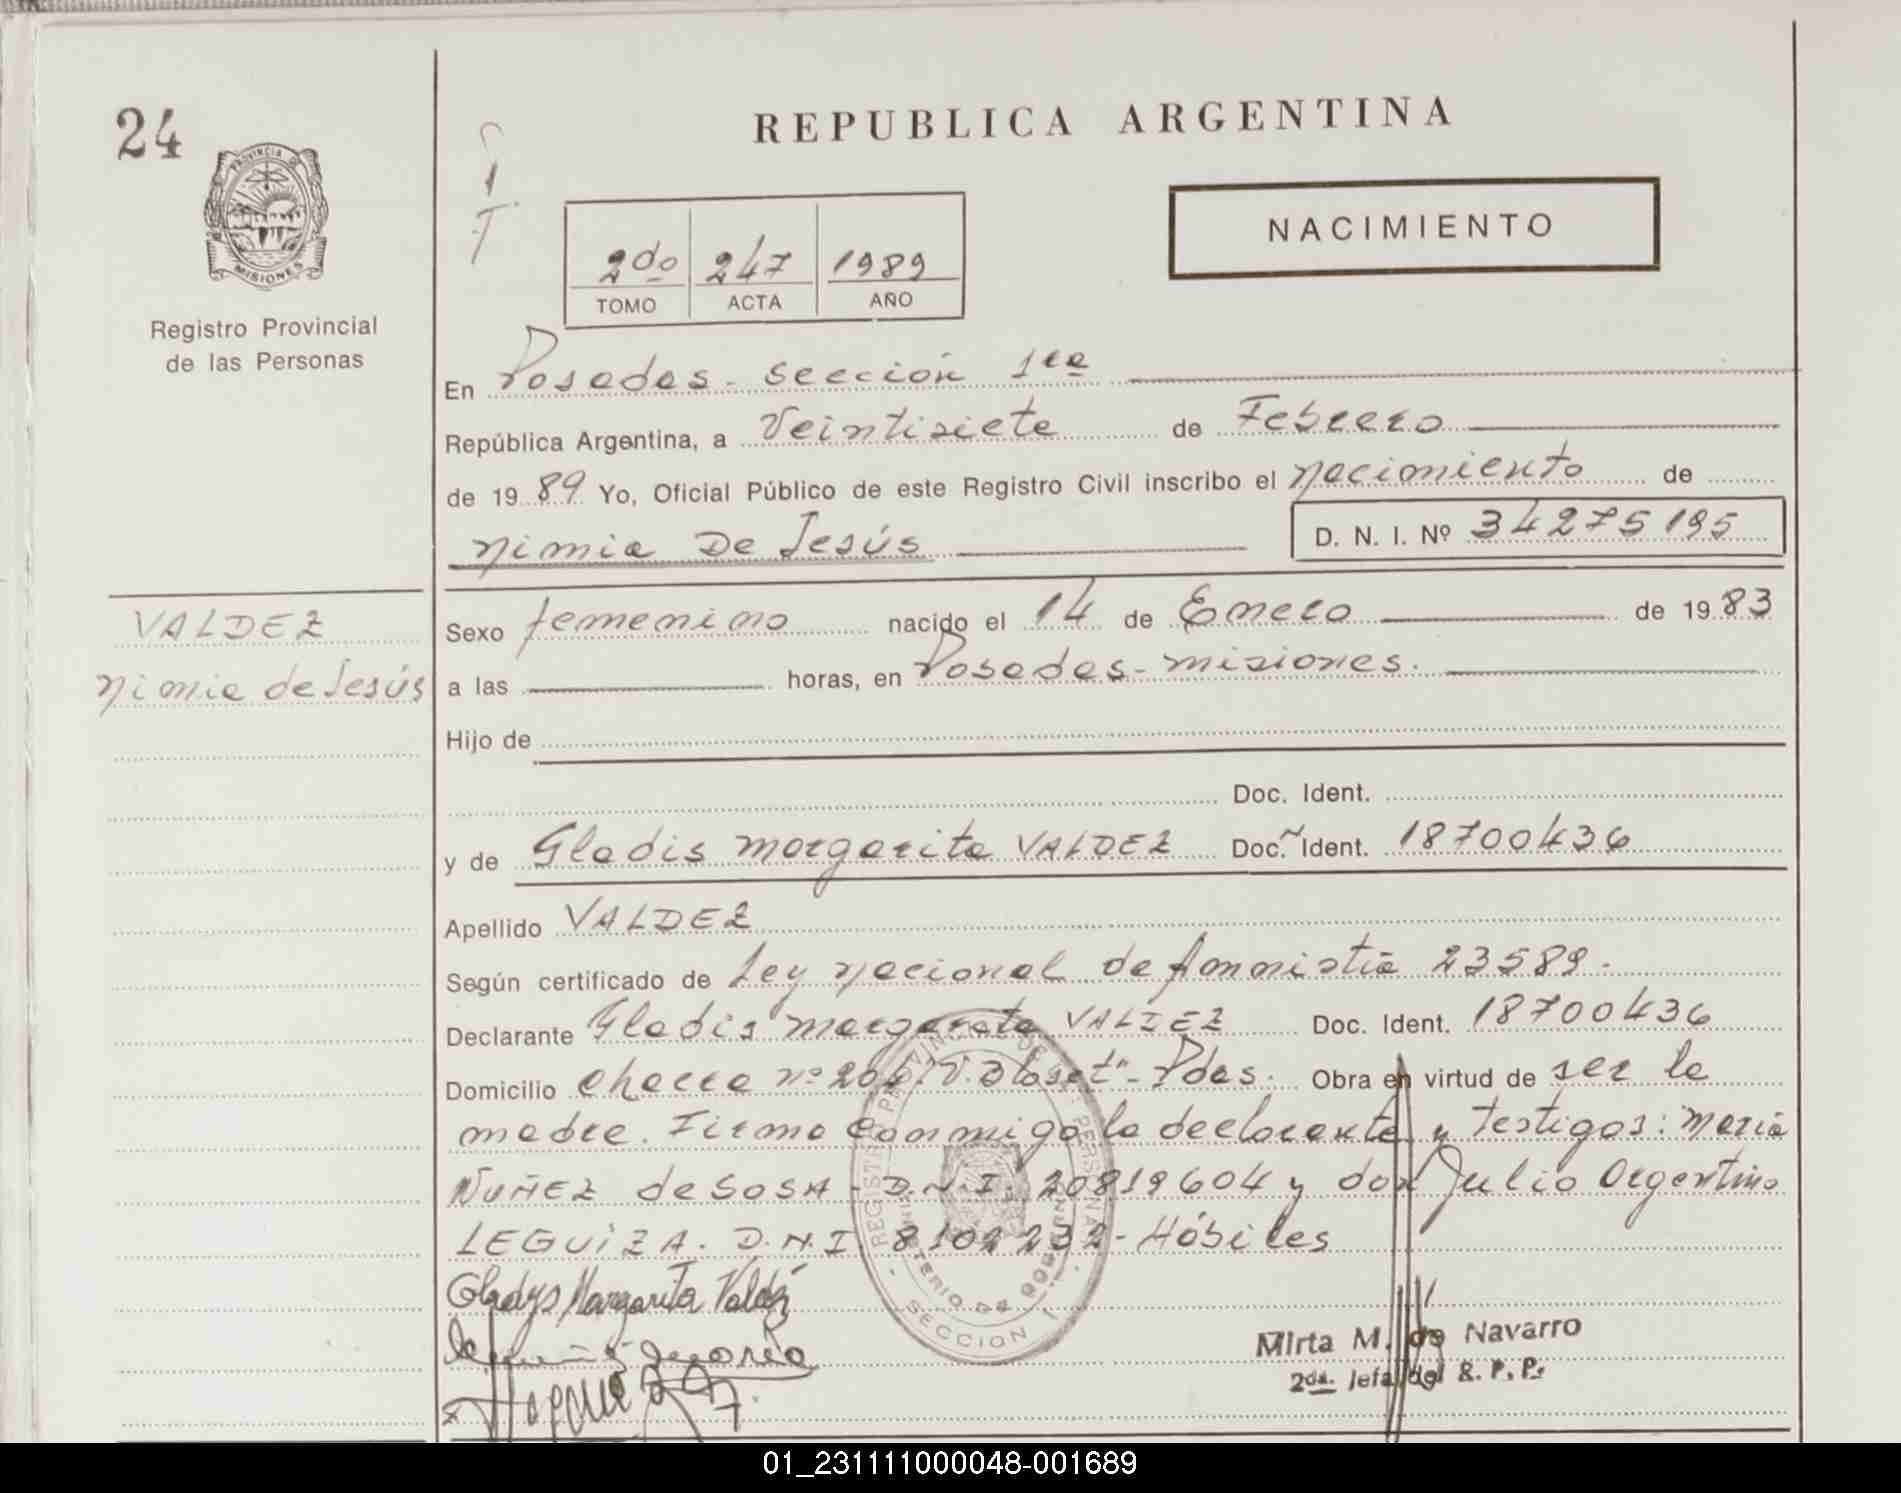 24
REPUBLICA ARGENTINA
PROVINCIA DE
MISIONES
Registro Provincial
de las Personas
2do 247 1989
TOMO ACTA AÑO
NACIMIENTO
En Posadas - sección 1ra
República Argentina, a Veintisiete de Febrero
de 19 89 Yo, Oficial Público de este Registro Civil inscribo el nacimiento de
Nimia De Jesús D. N. I. Nº 34275195
VALDEZ
Nimia de Jesús
Sexo femenino nacido el 14 de Enero de 19 83
a las horas, en Posadas - misiones.
Hijo de
Doc. Ident.
y de Gladis margarita VALDEZ Doc. Ident. 18700436
Apellido VALDEZ
Según certificado de Ley nacional de Amnistía 23589.
Declarante Gladis margarita VALDEZ Doc. Ident. 18700436
Domicilio chacra nº - Pdas. Obra en virtud de ser la
madre. Firma conmigo la declarante y testigos: María
NUÑEZ de SOSA - D.N.I. 20819604 y don Julio Argentino
LEGUIZA. D.N.I. 8102232 - Hábiles
Gladys Margarita Valdéz
Mirta M. de Navarro
2da. Jefa del R. P. P.
SECCION 1
01_231111000048-001689